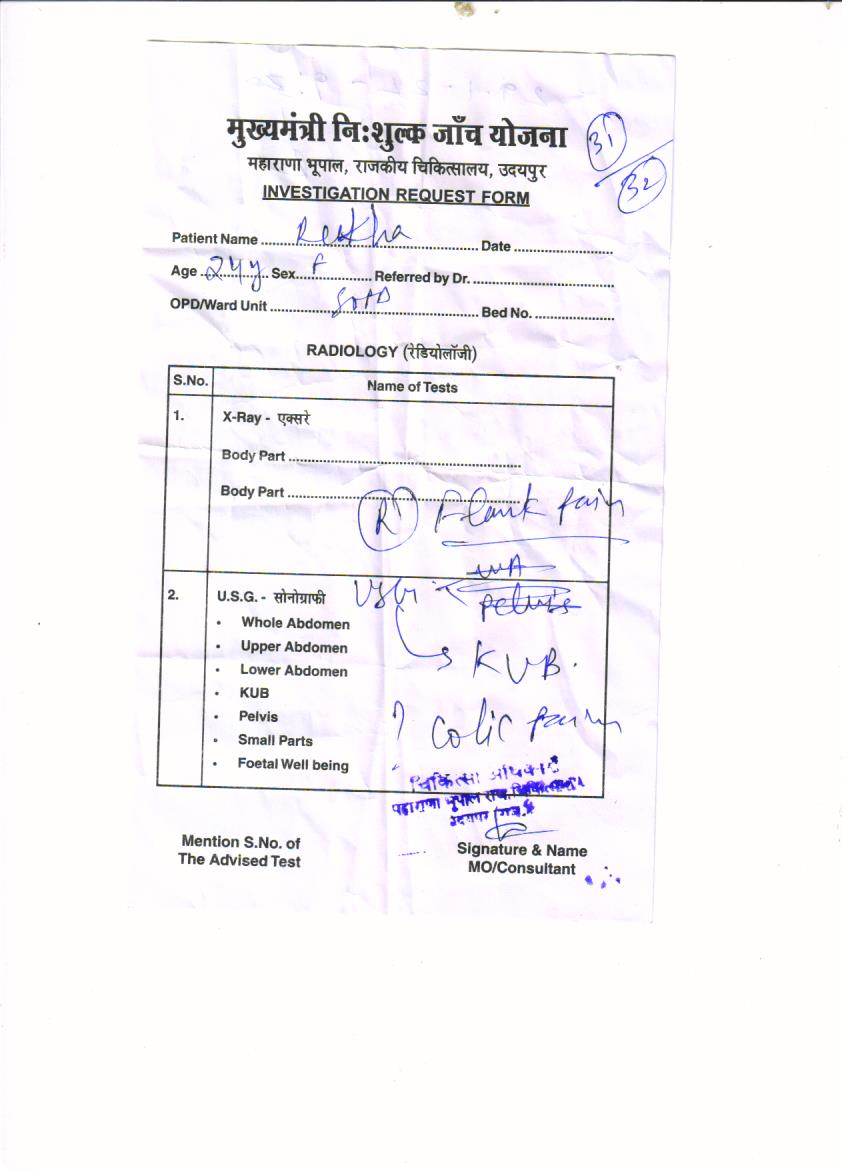 मुख्यमंत्री निःशुल्क जाँच योजना
31
32
महाराणा भूपाल, राजकीय चिकित्सालय, उदयपुर
INVESTIGATION REQUEST FORM
Patient Name .......... Rekha .......... Date ..........
Age .. 24 y .. Sex.. F .......... Referred by Dr. ..........
OPD/Ward Unit .......... Bed No. ..........
RADIOLOGY (रेडियोलॉजी)
S.No. Name of Tests
1. X-Ray - एक्सरे
Body Part ..........
Body Part ..........
R Flank pain
WA
2. U.S.G. - सोनोग्राफी USG pelvis
• Whole Abdomen
• Upper Abdomen
• Lower Abdomen KUB.
• KUB
• Pelvis ? colic pain
• Small Parts
• Foetal Well being
चिकित्सा अधिकारी
महाराणा भूपाल राज. चिकित्सालय
उदयपुर (राज.)
Mention S.No. of
The Advised Test
Signature & Name
MO/Consultant